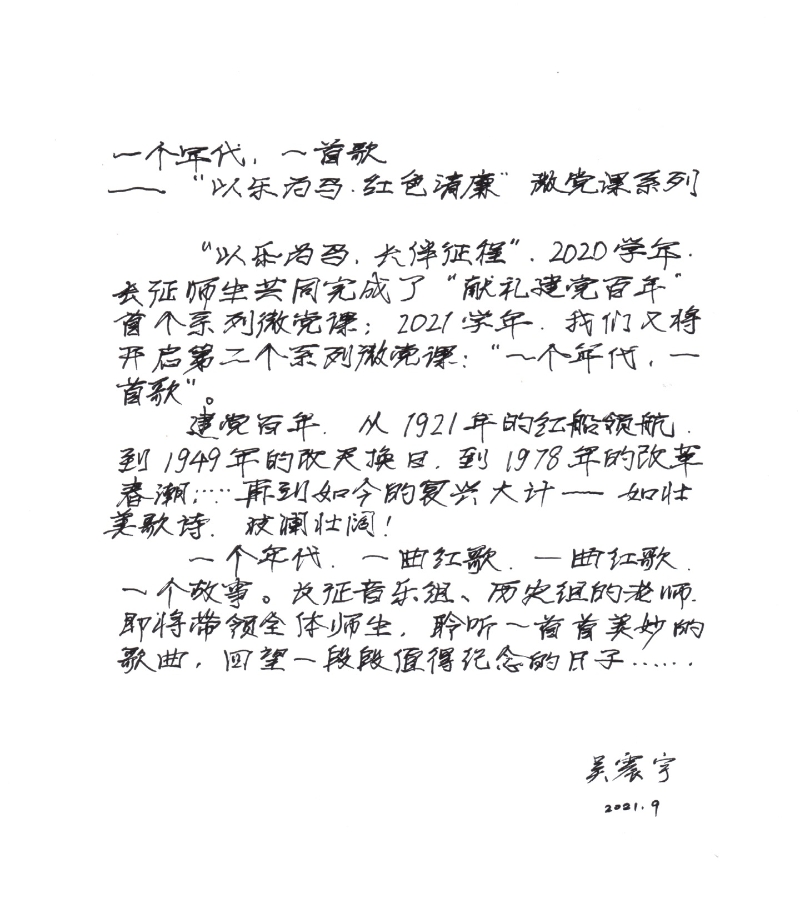 一个年代，一首歌
——“以乐为马·红色清廉”微党课系列
“以乐为马，长伴征程”，2020学年，
长征师生共同完成了“献礼建党百年”
首个系列微党课；2021学年，我们又将
开启第二个系列微党课：“一个年代，一
首歌”。
建党百年，从1921年的红船领航，
到1949年的改天换日，到1978年的改革
春潮，……再到如今的复兴大计——如壮
美歌诗，波澜壮阔！
一个年代，一曲红歌，一曲红歌，
一个故事。长征音乐组、历史组的老师，
即将带领全体师生，聆听一首首美妙的
歌曲，回望一段段值得纪念的日子……，
吴震宇
2021.9